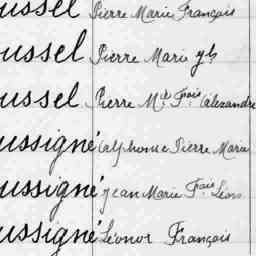 ussel Pierre Marie François
ussel Pierre Marie
ussel Pierre Mie Fois Alexandre
ussigné Calphonse Pierre Marie
ussigné Jean Marie Fois Léon
ussigné Léonor François